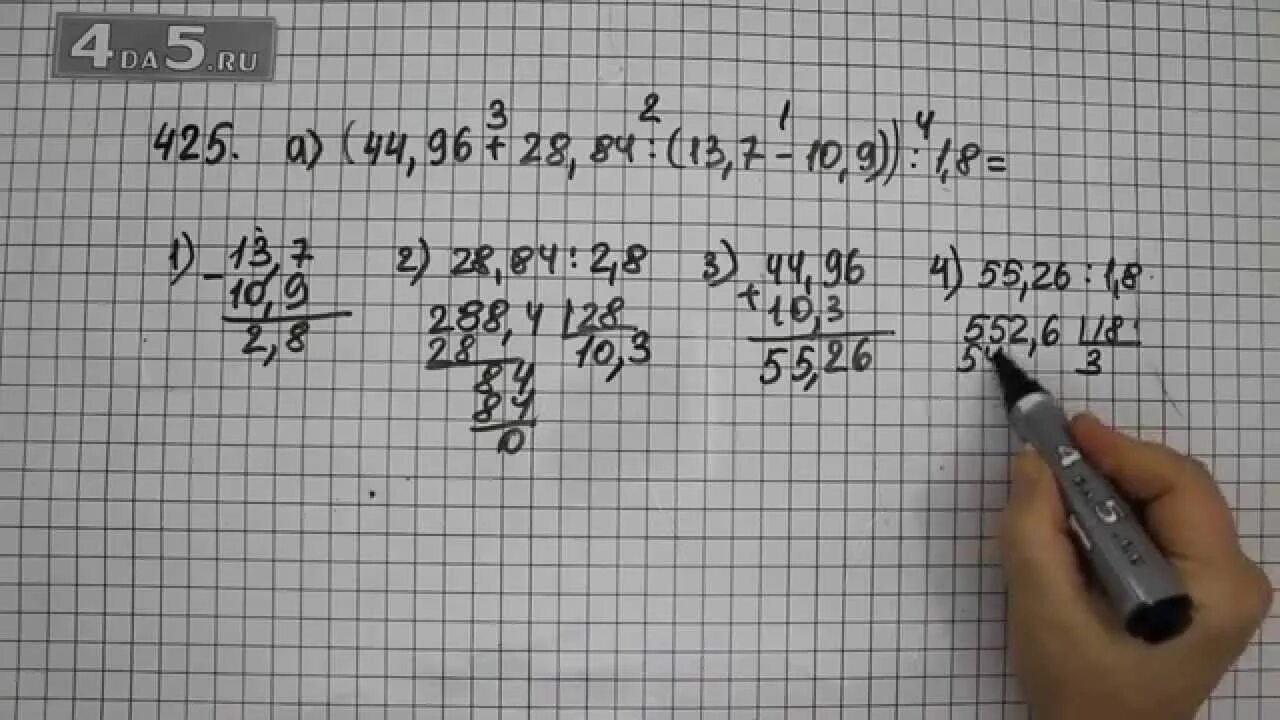 4DA5.RU
425. а) (44,96 + 28,84 : (13,7 - 10,9)) : 1,8 =
3 2 1 4
1) 13,7
- 10,9
2,8
2) 28,84 : 2,8
288,4 | 28
28 10,3
84
84
0
3) 44,96
+ 10,3
55,26
4) 55,26 : 1,8
552,6 | 18
54 3
4 DA 5